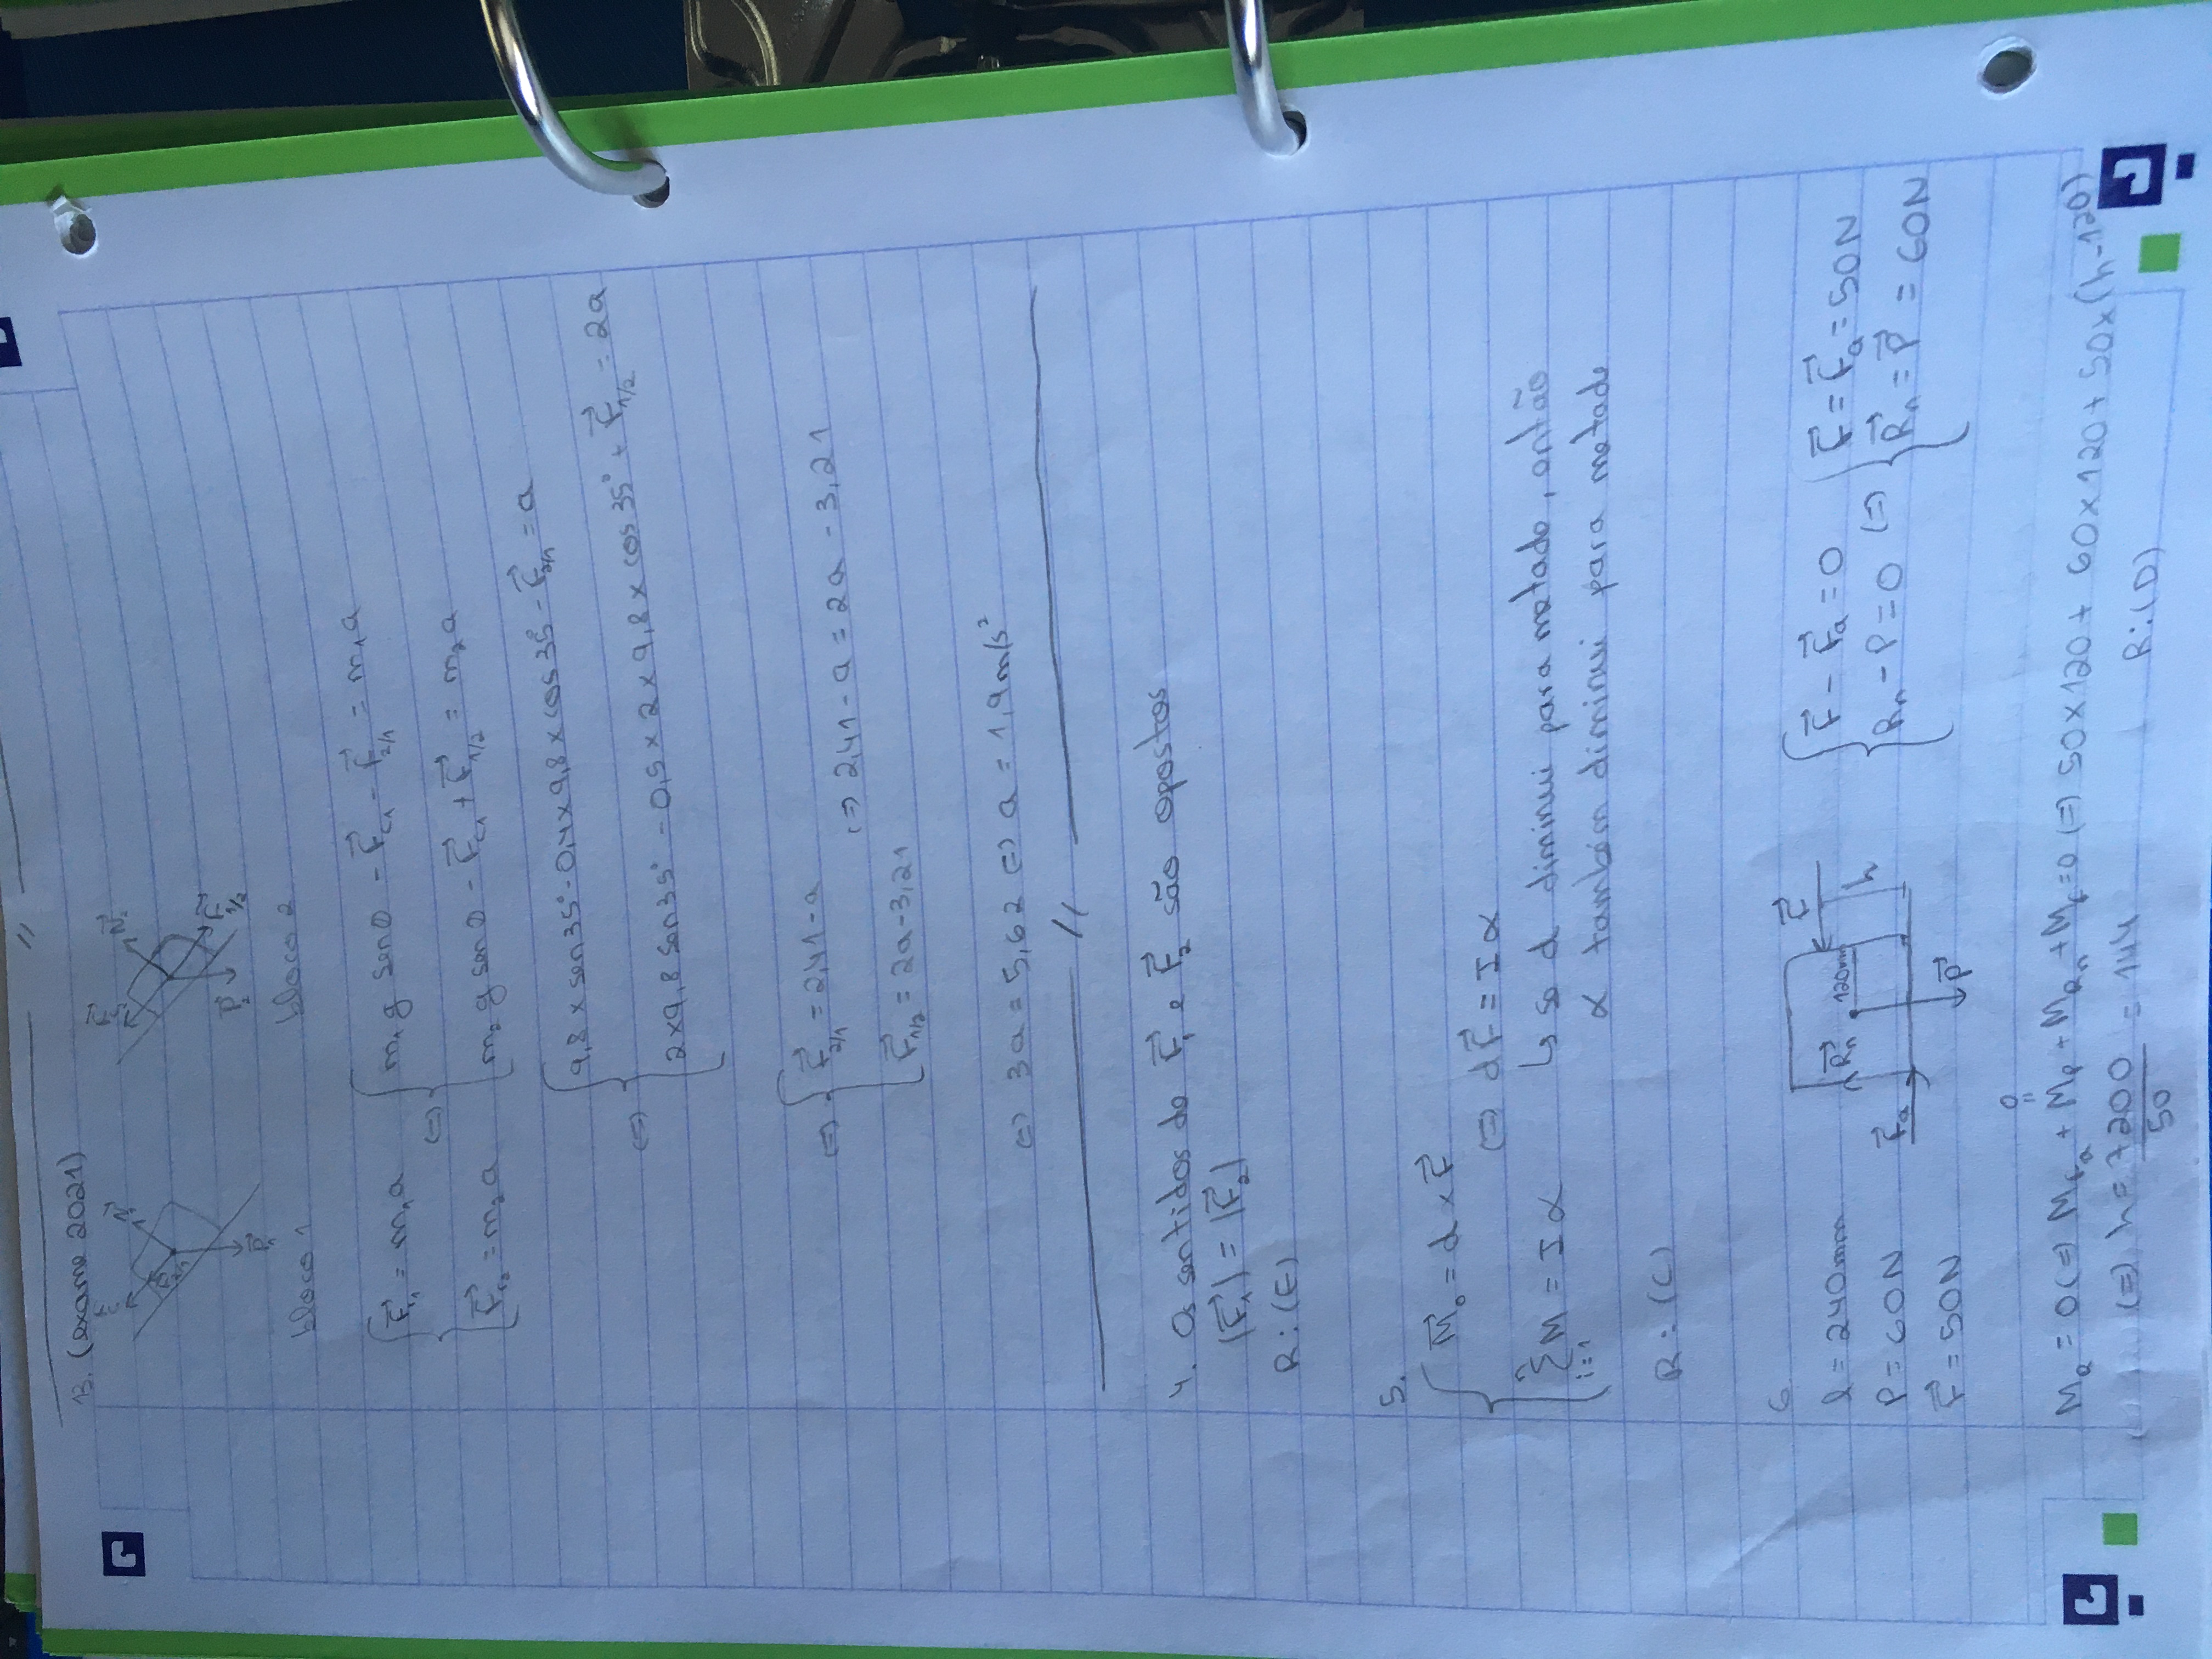 13. (exame 2021)
bloco 1
bloco 2
P₂ F₁/₂
{ F⃗r₁ = m₁a ⇔ { m₁ g sen θ - F⃗c₁ - F⃗₂/₁ = m₁a
{ F⃗r₂ = m₂ a { m₂ g sen θ - F⃗c₁ + F⃗₁/₂ = m₂a
⇔ { 9,8 × sen35° - 0,4 × 9,8 × cos 35° - F⃗₂/₁ = a
{ 2×9,8 sen35° - 0,5 × 2 × 9,8 × cos 35° + F⃗₁/₂ = 2a
⇔ { F⃗₂/₁ = 2,41 - a ⇔ 2,41 - a = 2a - 3,21
{ F⃗₁/₂ = 2a - 3,21
⇔ 3a = 5,62 ⇔ a = 1,9 m/s²
//
4. Os sentidos de F⃗₁ e F⃗₂ são opostos
|F⃗₁| = |F⃗₂|
R: (E)
5.
{ M⃗₀ = d × F⃗
⇔ dF⃗ = I α
{ Σⁿᵢ₌₁ M = I α ↳ se d diminui para metade, então
α também diminui para metade
R: (C)
6
l = 240mm
P = 60N
F⃗ = 50N
F⃗ R⃗n 120mm h F⃗a P⃗
{ F⃗ - F⃗a = 0 ⇔ { F⃗ = F⃗a = 50N
{ Rn - P = 0 { R⃗n = P⃗ = 60N
0
=
M = 0 ⇔ MFa + MP + MRn + MF = 0 ⇔ 50×120 + 60×120 + 50×(h-120)
⇔ h = 7200/50 = 144 R: (D)